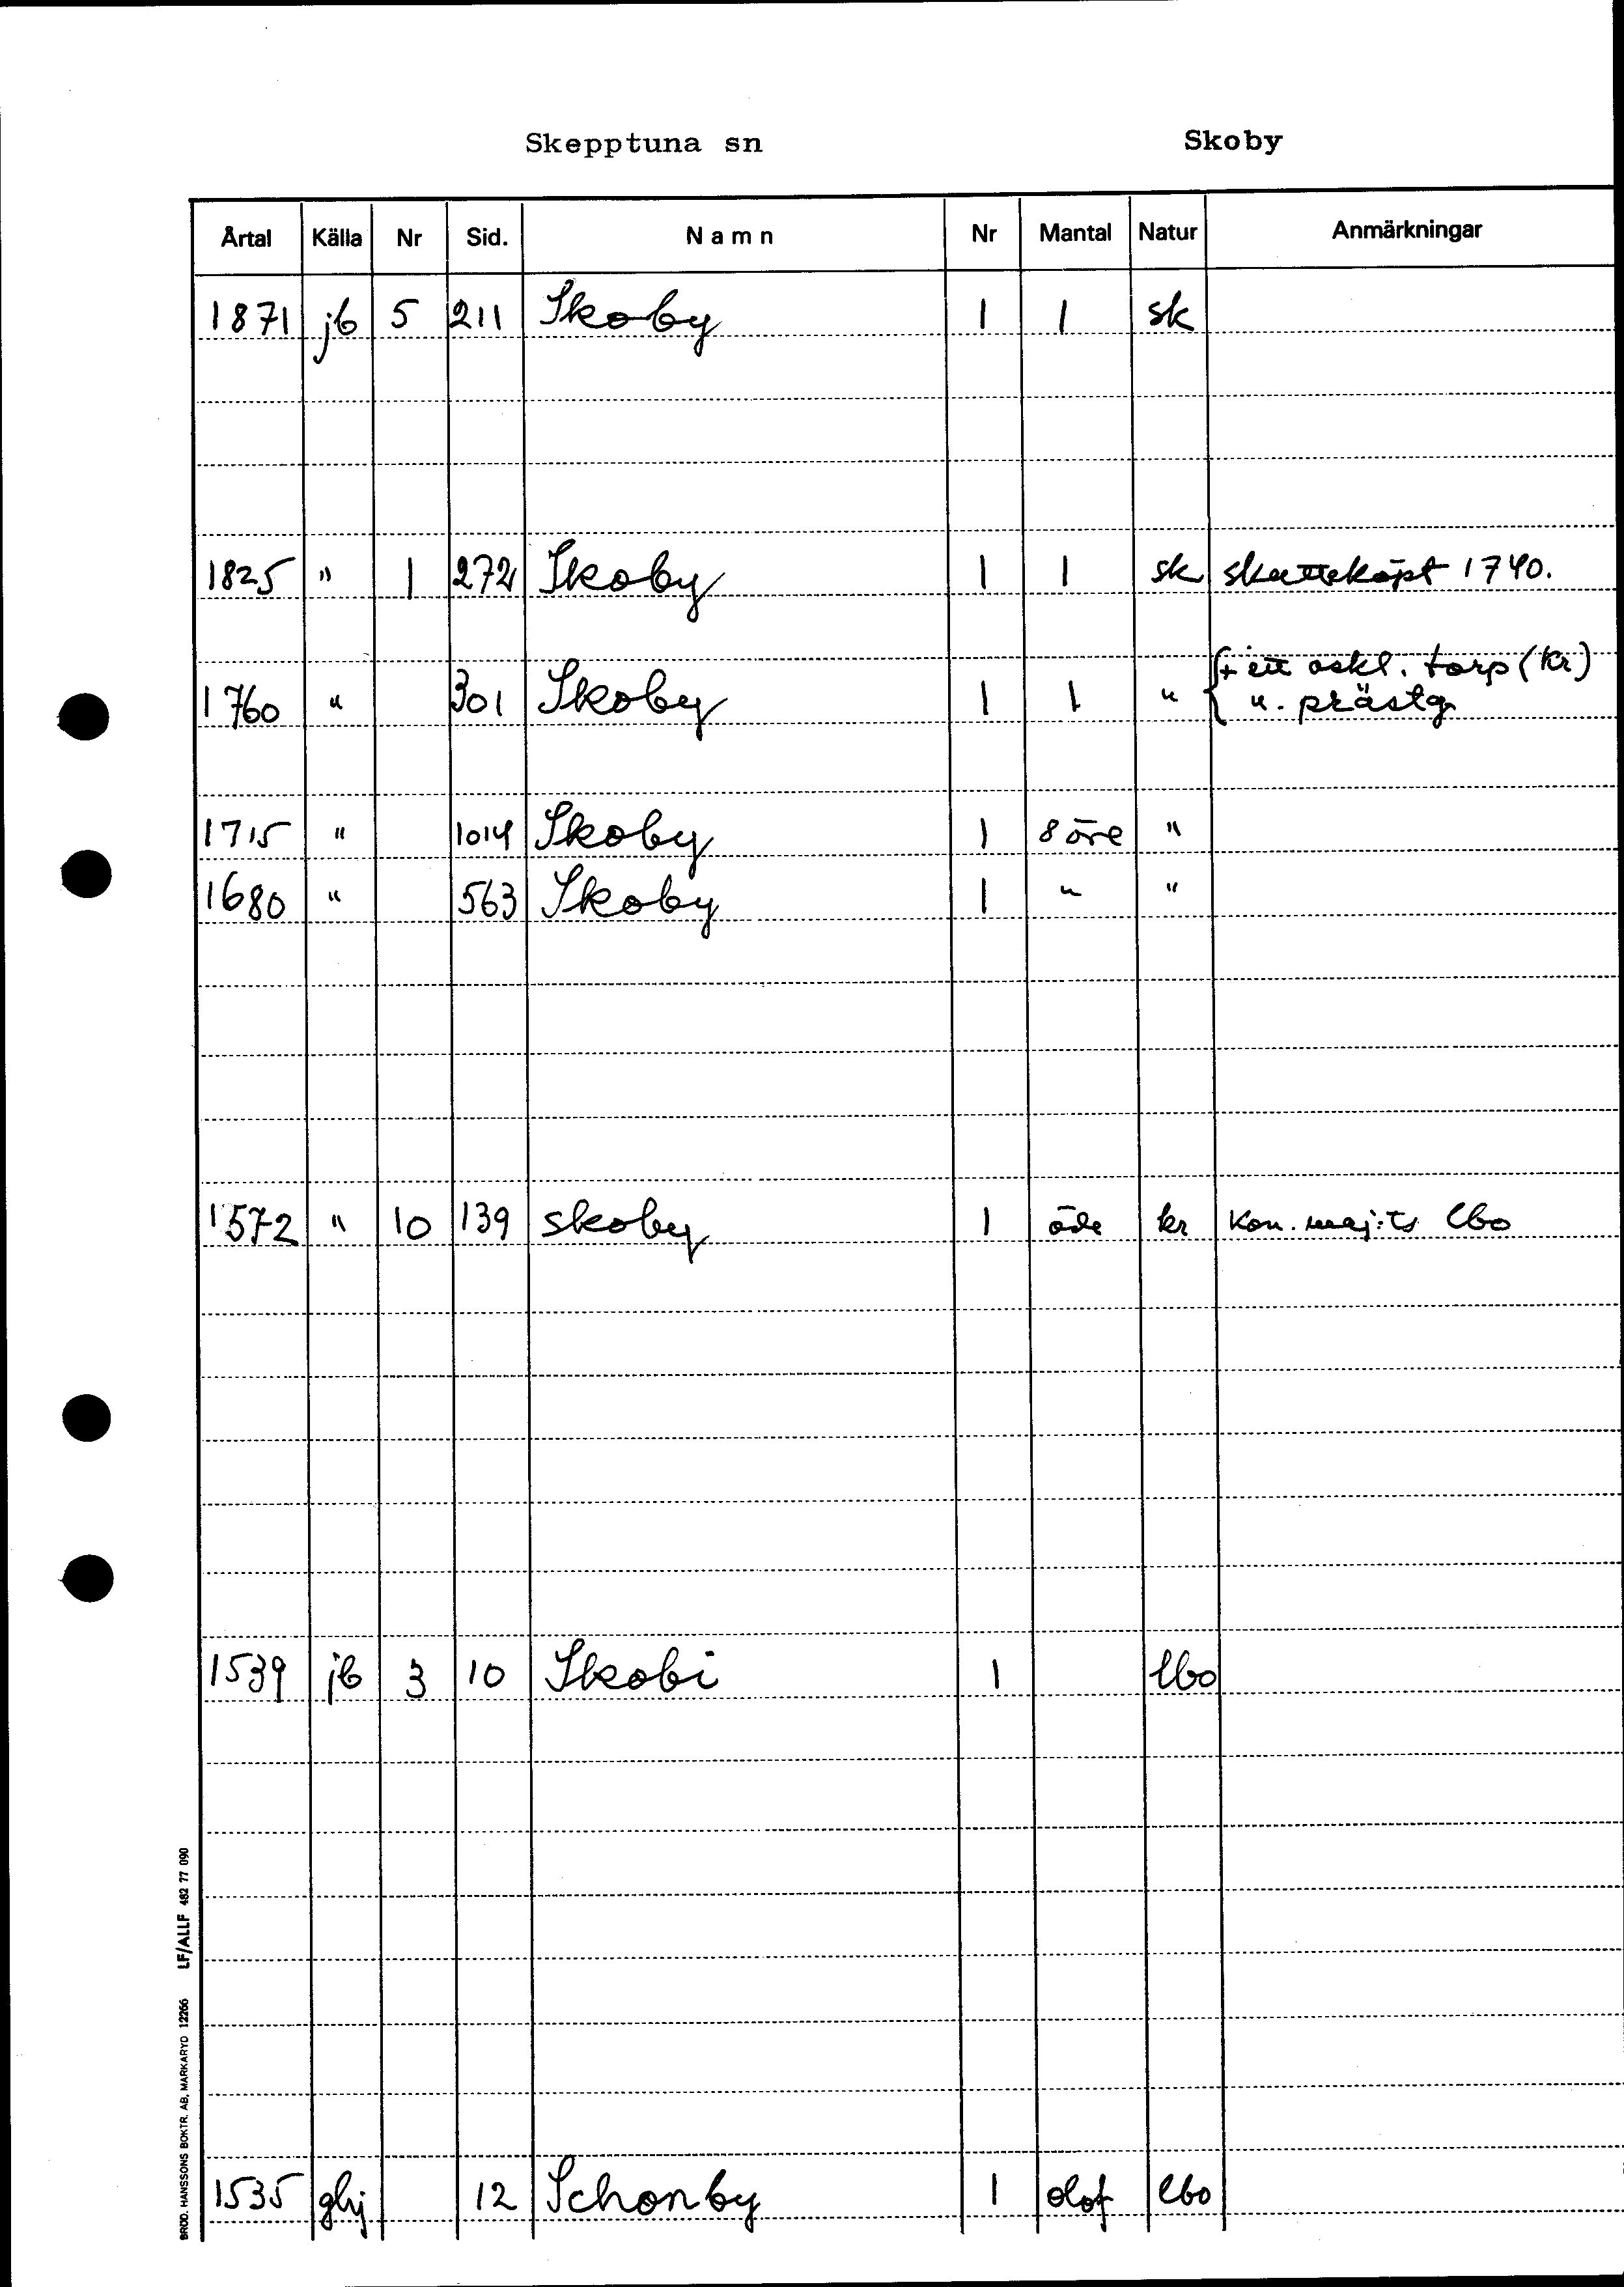 Skepptuna sn Skoby
Årtal Källa Nr Sid. Namn Nr Mantal Natur Anmärkningar
1871 jb 5 211 Skoby 1 1 sk
1825 " 1 272 Skoby 1 1 sk skatteköpt 1740.
{+ ett oskl. torp (kr)
1760 " 301 Skoby 1 1 " u. prästg
1715 " 1014 Skoby 1 8 öre "
1680 " 563 Skoby 1 " "
1572 " 10 139 skoby 1 öde kr Kon. maj:ts lbo
1539 jb 3 10 Skobi 1 lbo
1535 ghj 12 Schonby 1 olof lbo
BRÖD. HANSSONS BOKTR. AB, MARKARYD 12266 LF/ALLF 482 77 090